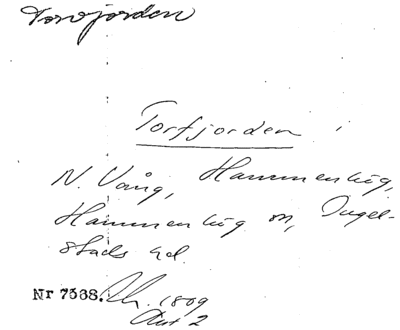 Torvjorden
Torfjorden i
N. Vång, Hammenhög,
Hammenhög sn, Ingel-
stads hd.
Nr 7568. Uh. 1809
Akt 2